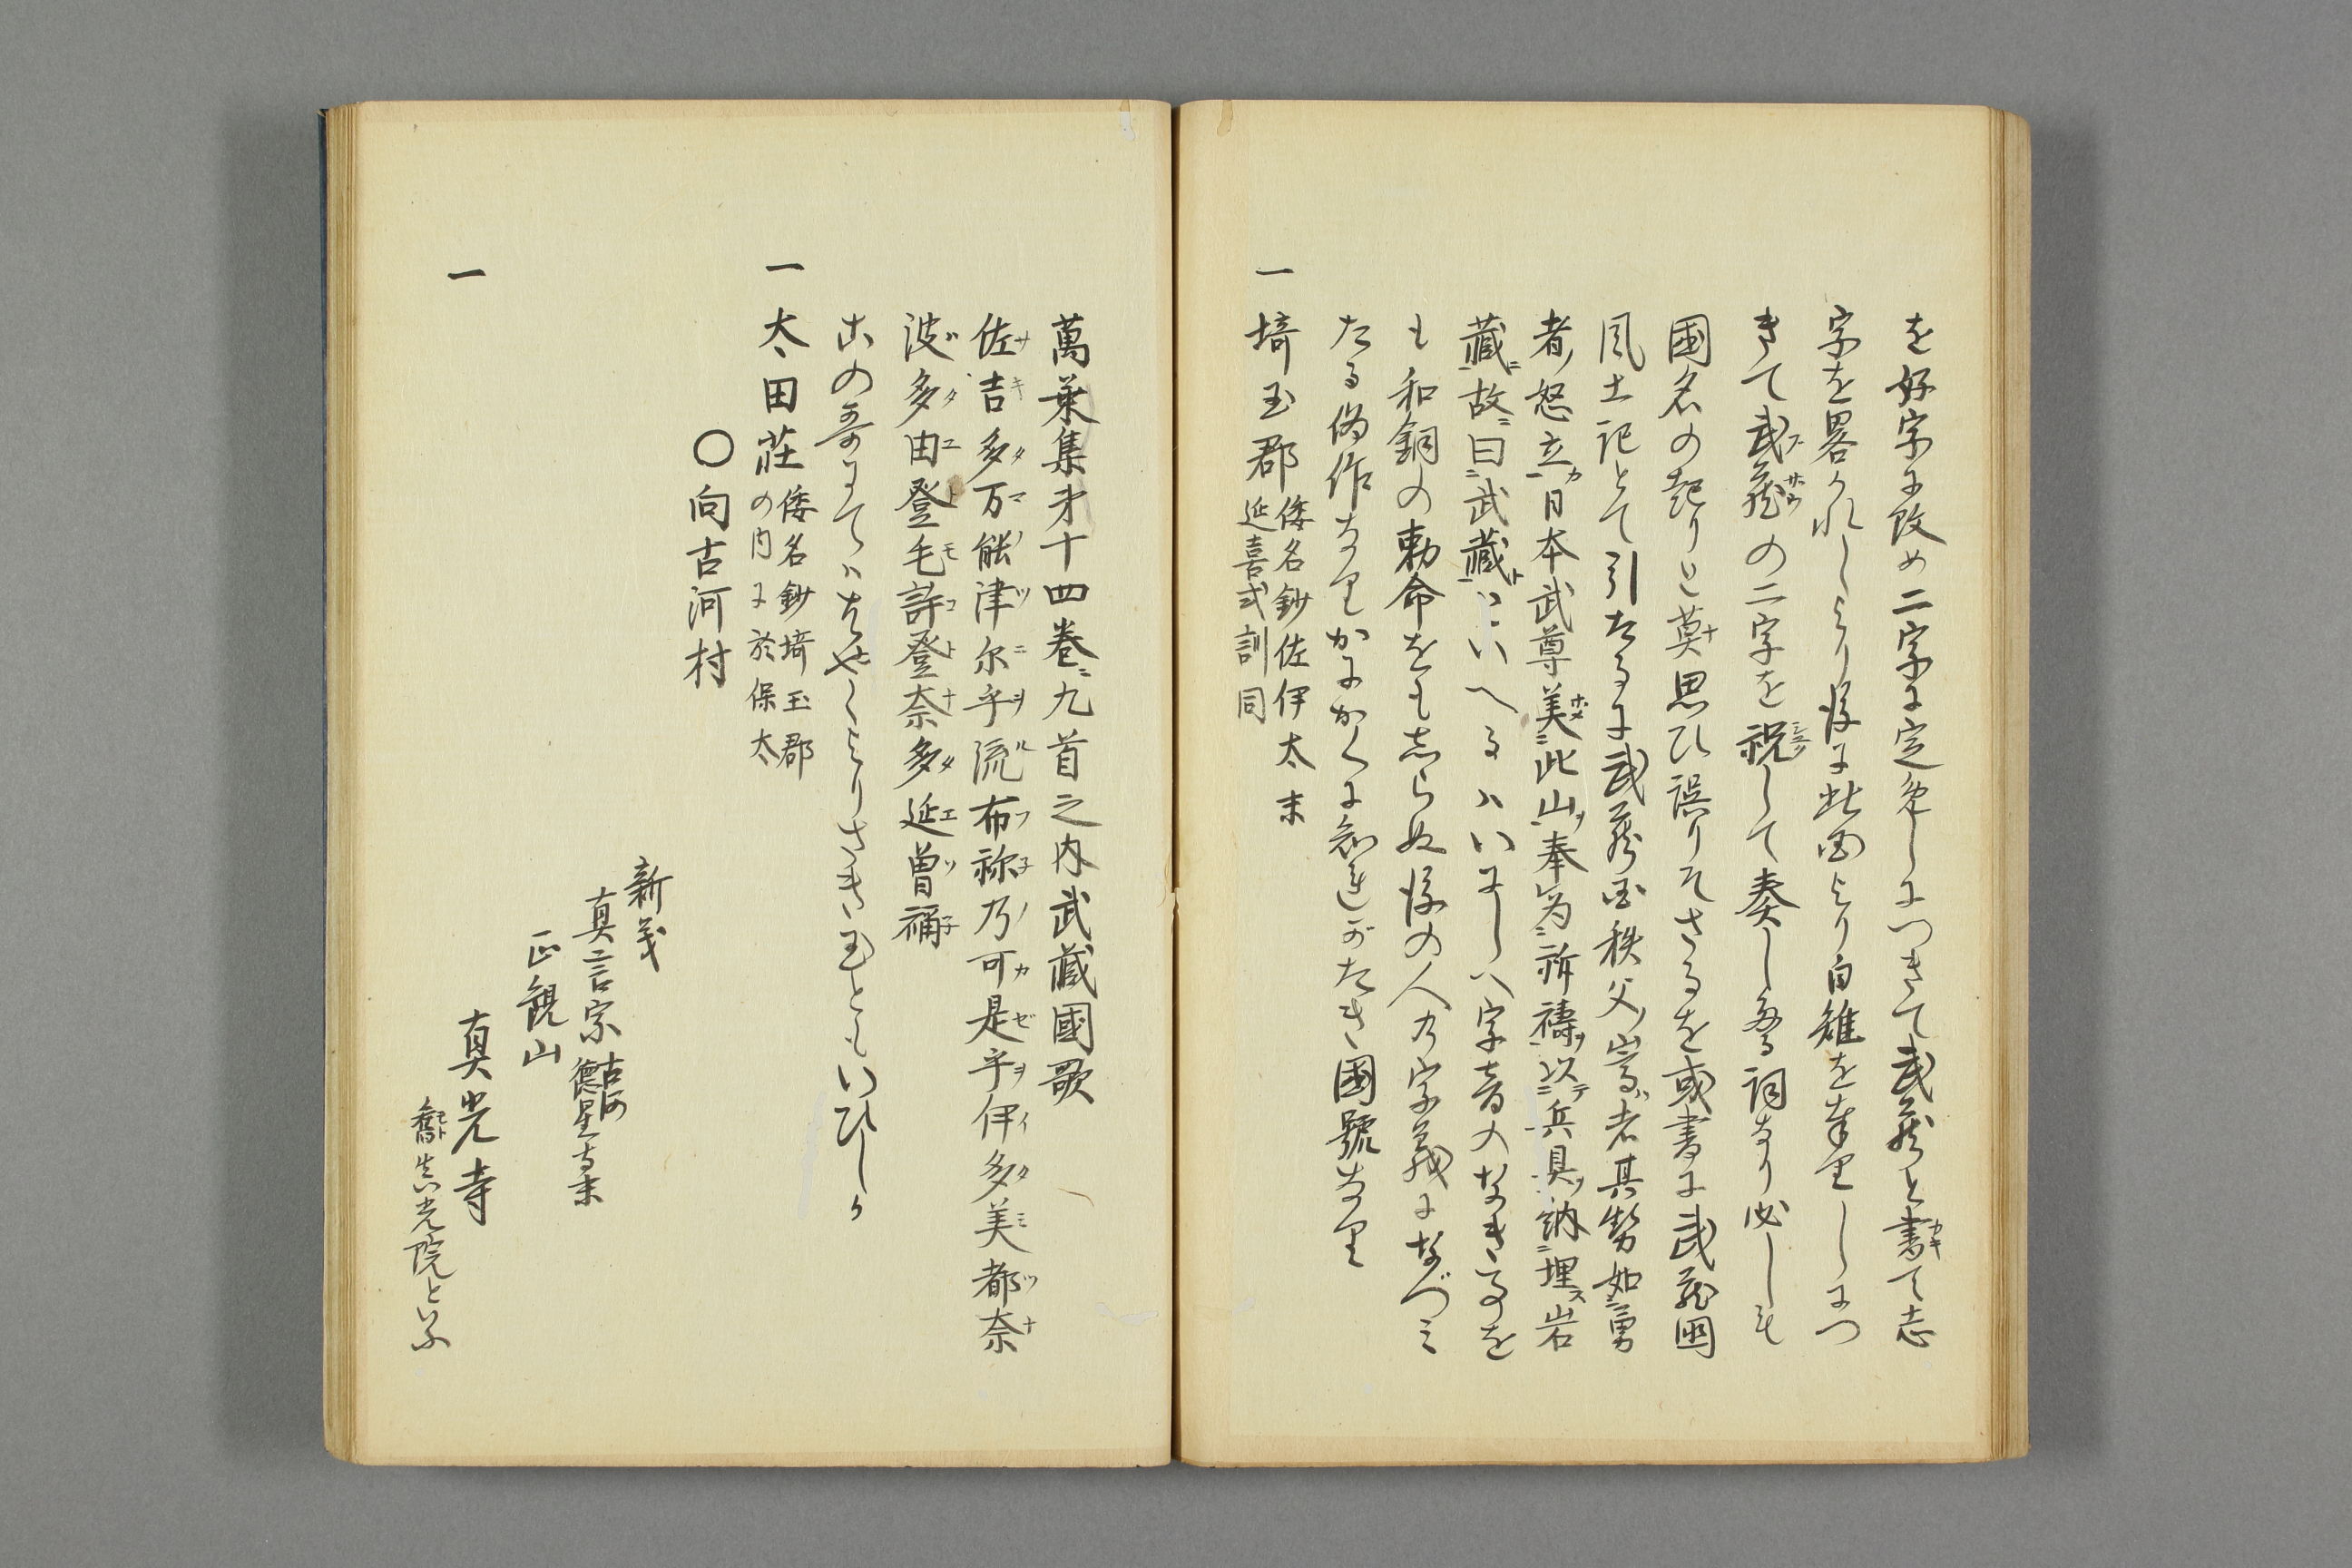 を好字に改め二字に定免しにつきて武蔵と書て志
字を畧かれしより後に此国より白雉を奉里しにつ
きて武蔵の二字を祝して奏し多る詞なり必しも
国名の起りと莫思ひ誤りそさるを或書に武蔵國
風土記とて引たるに武蔵国秩父嵩者其勢如勇
者怒立日本武尊美此山奉為祈禱以兵具納埋岩
蔵故曰武蔵といへるハいまし八字音のなき事を
も和銅の勅命をもしらぬ後の人乃字義になづミ
たる偽作なりかにかくに知連がたき國號なり
一 埼玉郡 倭名鈔佐伊太末
延喜式訓同
萬葉集才十四巻ニ九首之内武蔵國歌
佐吉多万能津尓乎流布祢乃可是乎伊多美都奈
波多由登毛許登奈多延曽祢
古の哥にてハはやくよりさき玉ともいひしか
一 太田荘 倭名鈔埼玉郡
の内に於保太
〇向古河村
新義
真言宗 古河
徳星寺末
正観山
一 真光寺
旧真光院といふ